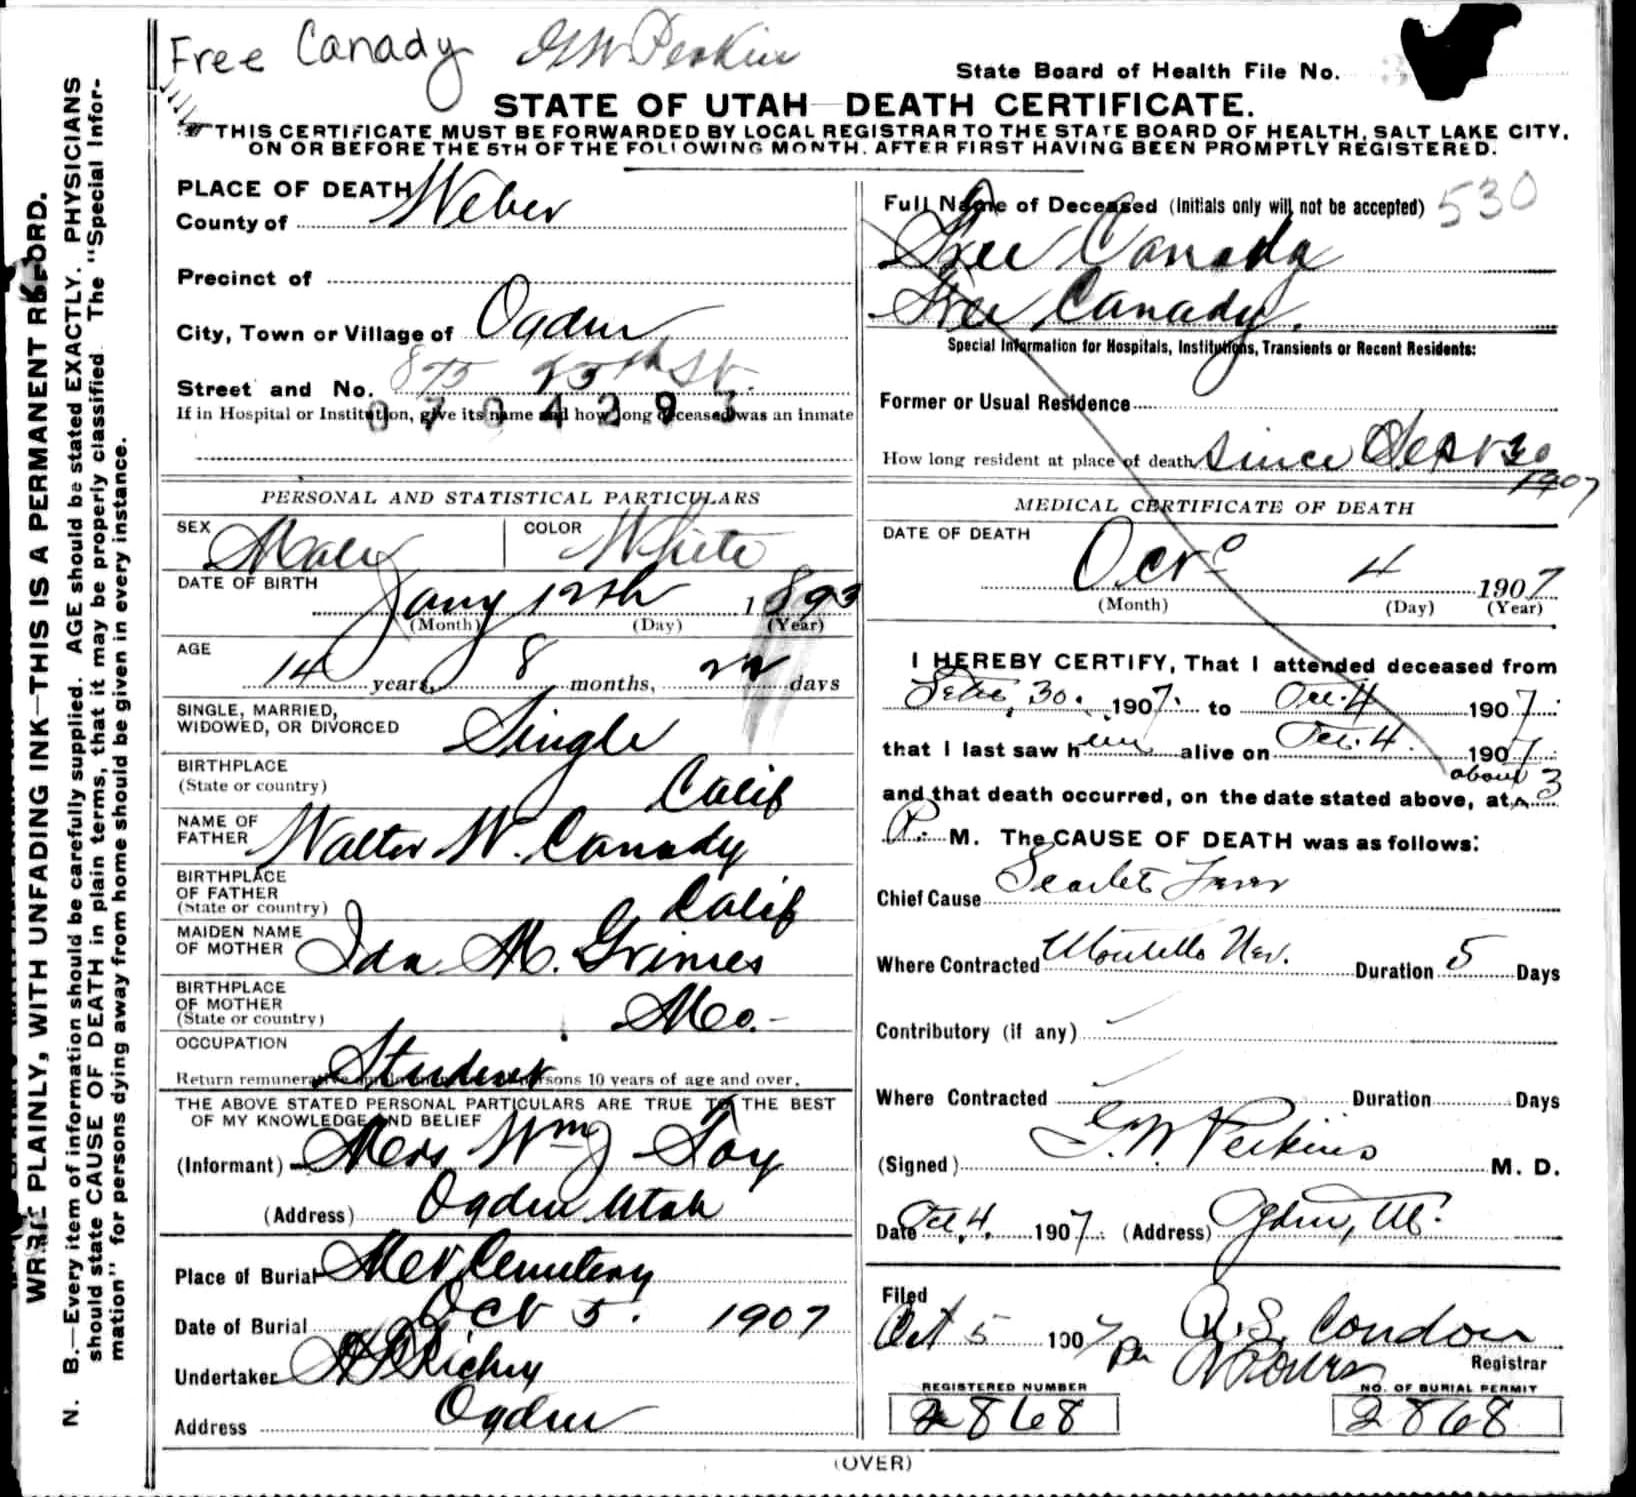 Free Canady GW Perkins
State Board of Health File No.
STATE OF UTAH—DEATH CERTIFICATE.
THIS CERTIFICATE MUST BE FORWARDED BY LOCAL REGISTRAR TO THE STATE BOARD OF HEALTH, SALT LAKE CITY,
ON OR BEFORE THE 5TH OF THE FOLLOWING MONTH. AFTER FIRST HAVING BEEN PROMPTLY REGISTERED.
WRITE PLAINLY, WITH UNFADING INK—THIS IS A PERMANENT RECORD.
N. B.—Every item of information should be carefully supplied. AGE should be stated EXACTLY. PHYSICIANS
should state CAUSE OF DEATH in plain terms, that it may be properly classified. The "Special Infor-
mation" for persons dying away from home should be given in every instance.
PLACE OF DEATH
County of Weber
Precinct of
City, Town or Village of Ogden
Street and No. 875 25th St.
If in Hospital or Institution, give its name and how long deceased was an inmate
PERSONAL AND STATISTICAL PARTICULARS
SEX Male COLOR White
DATE OF BIRTH
Jany 12th 1893
(Month) (Day) (Year)
AGE
14 years, 8 months, 22 days
SINGLE, MARRIED,
WIDOWED, OR DIVORCED Single
BIRTHPLACE
(State or country) Calif
NAME OF
FATHER Walter W. Canady
BIRTHPLACE
OF FATHER
(State or country) Calif
MAIDEN NAME
OF MOTHER Ida M. Grimes
BIRTHPLACE
OF MOTHER
(State or country) Mo.-
OCCUPATION
Student
Return persons 10 years of age and over.
THE ABOVE STATED PERSONAL PARTICULARS ARE TRUE TO THE BEST
OF MY KNOWLEDGE AND BELIEF
(Informant) Mrs Wm Toy
(Address) Ogden Utah
Place of Burial Mt Cemetery
Date of Burial Oct 5. 1907
Undertaker Richey
Address Ogden
Full Name of Deceased (Initials only will not be accepted) 530
Free Canady
Free Canady.
Special Information for Hospitals, Institutions, Transients or Recent Residents:
Former or Usual Residence
How long resident at place of death since Sept 30
1907
MEDICAL CERTIFICATE OF DEATH
DATE OF DEATH
Oct 4 1907
(Month) (Day) (Year)
I HEREBY CERTIFY, That I attended deceased from
Sept. 30. 1907. to Oct. 4 1907.
that I last saw him alive on Oct. 4. 1907.
about
and that death occurred, on the date stated above, at 3
P. M. The CAUSE OF DEATH was as follows:
Chief Cause Scarlet Fever
Where Contracted Montello Nev. Duration 5 Days
Contributory (if any)
Where Contracted Duration Days
(Signed) G.W. Perkins M. D.
Date Oct 4, 1907. (Address) Ogden, Ut.
Filed
Oct 5 1907 per R.S. Condon
Registrar
REGISTERED NUMBER
2868
NO. OF BURIAL PERMIT
2868
(OVER)